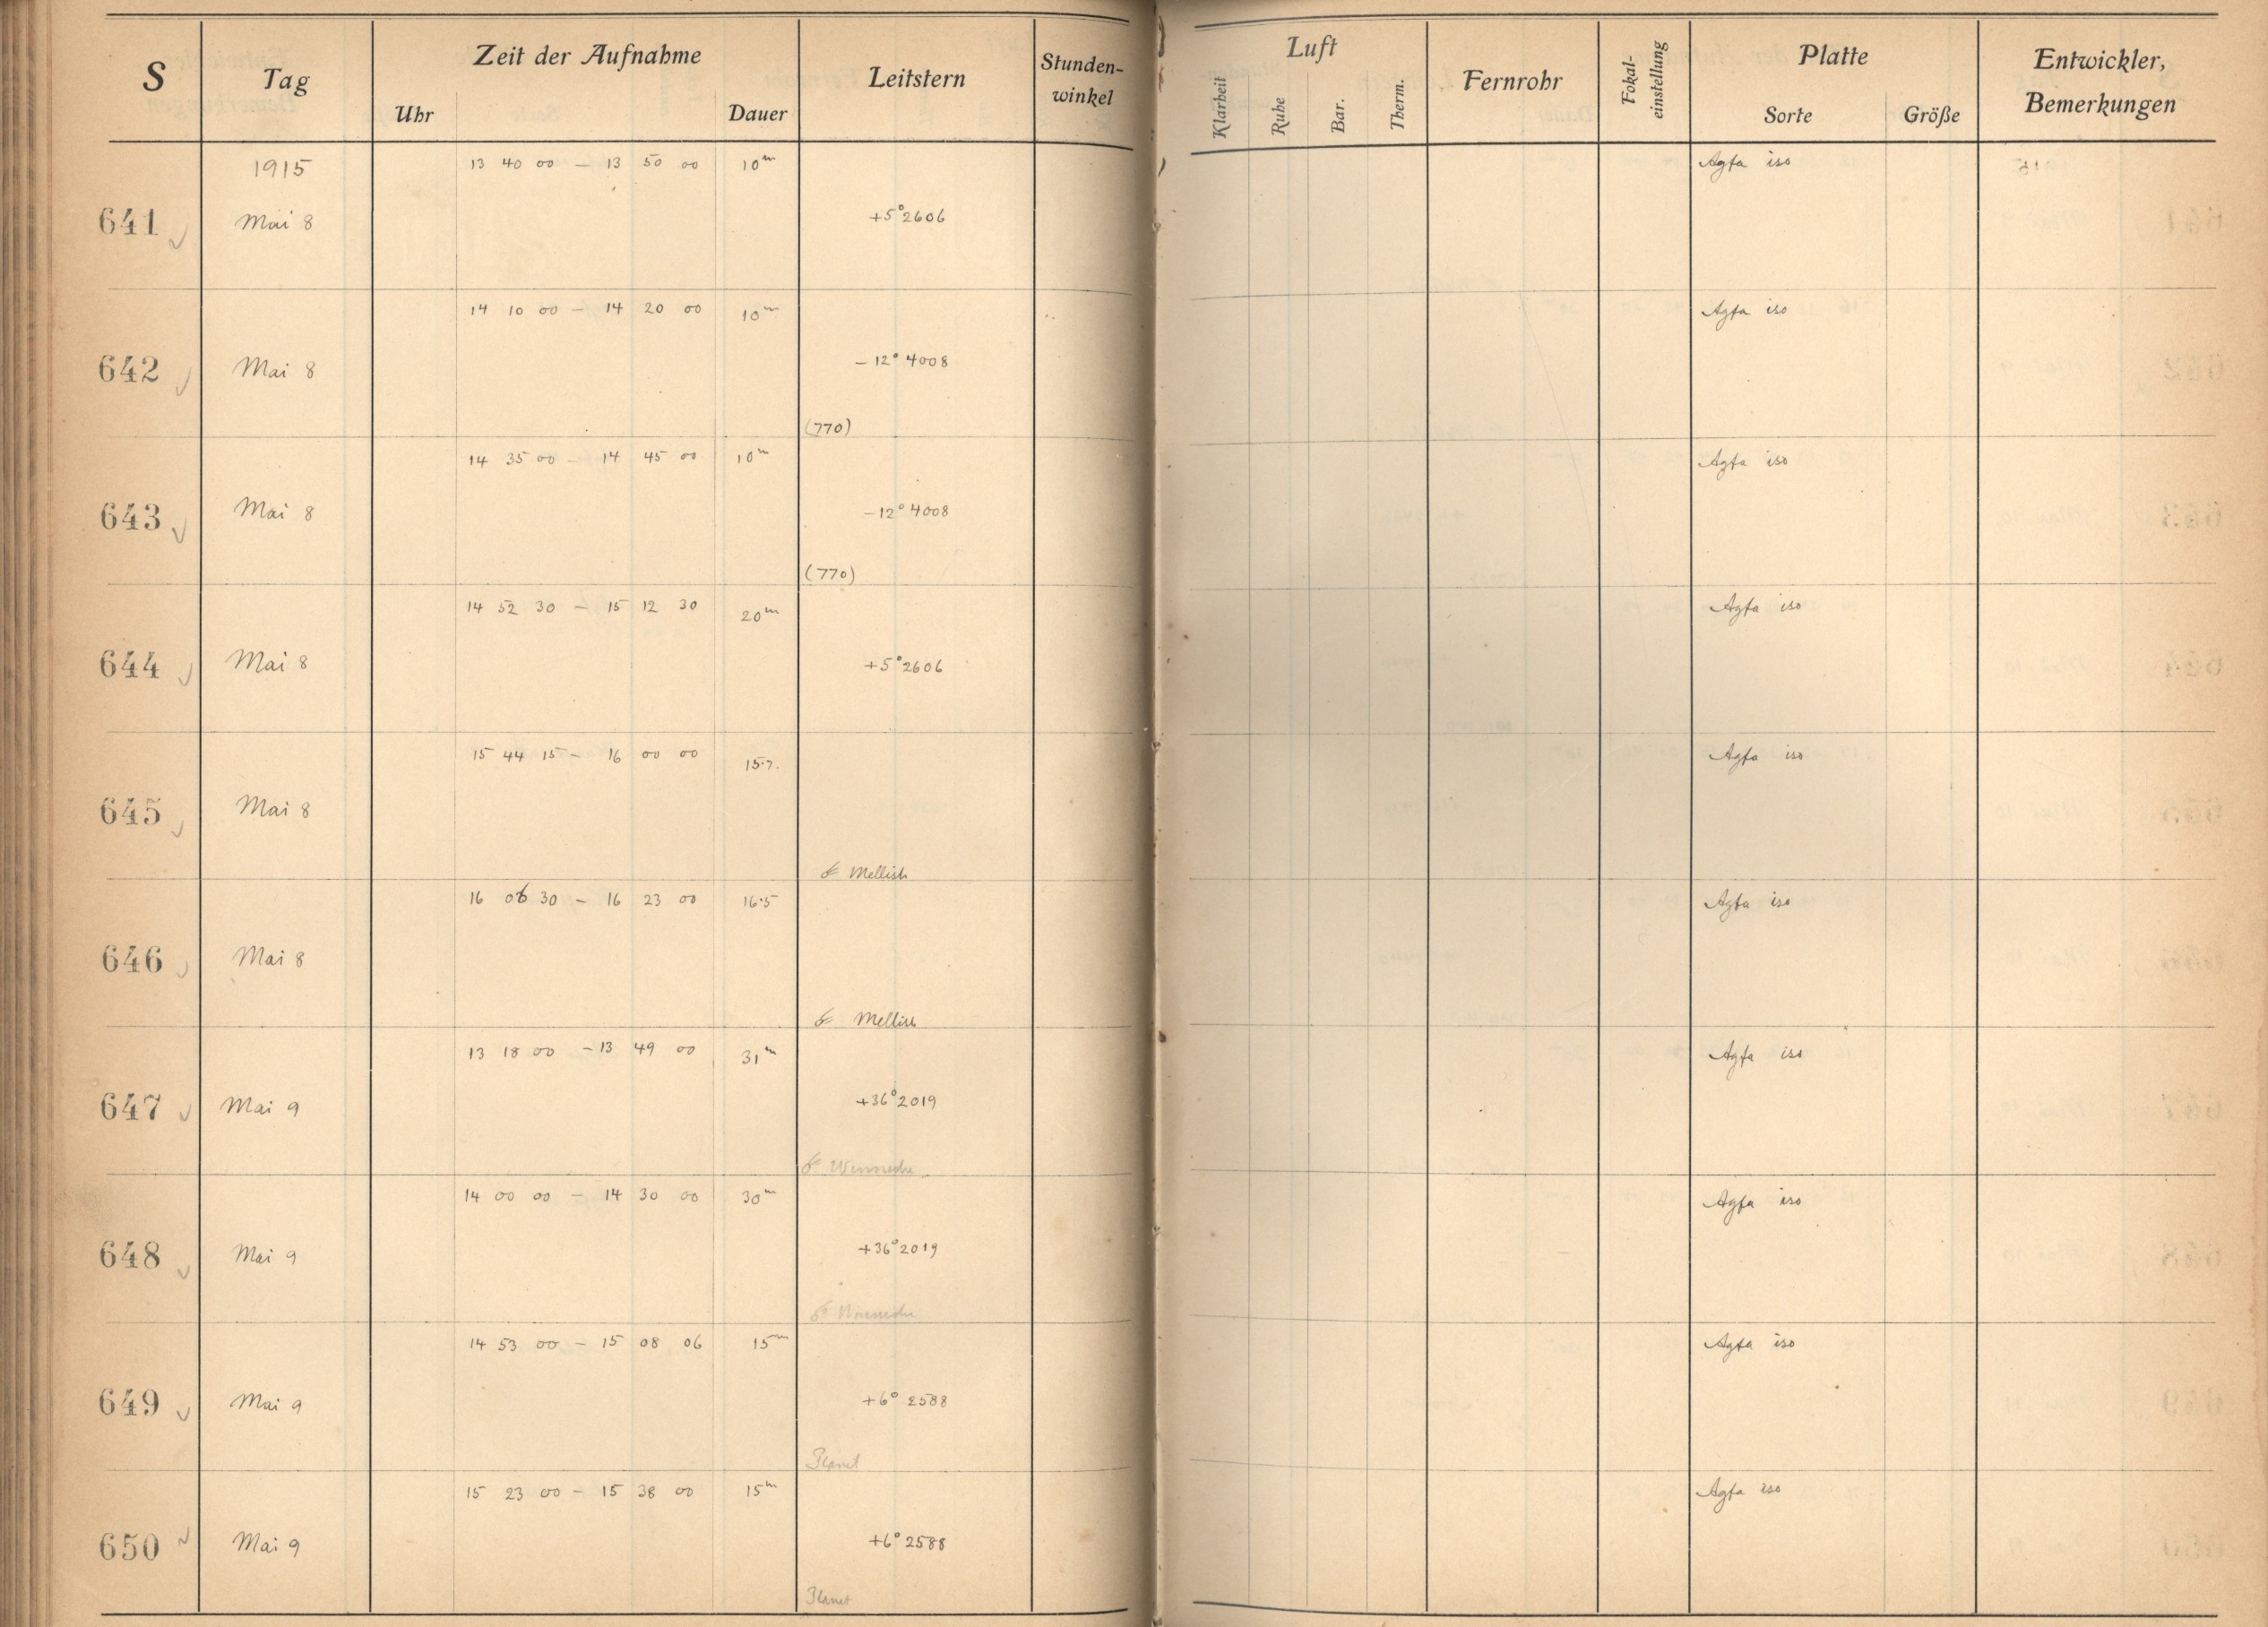 S Tag Zeit der Aufnahme Leitstern Stunden-winkel Luft Fernrohr Fokal-einstellung Platte Entwickler, Bemerkungen
Uhr Dauer Klarheit Ruhe Bar. Therm. Sorte Größe
1915 13 40 00 — 13 50 00 10m Agfa iso
641 Mai 8 +5°2606
14 10 00 — 14 20 00 10m Agfa iso
642 Mai 8 -12° 4008
(770)
14 35 00 — 14 45 00 10m Agfa iso
643 Mai 8 -12° 4008
(770)
14 52 30 — 15 12 30 20m Agfa iso
644 Mai 8 +5°2606
15 44 15 — 16 00 00 15.7 Agfa iso
645 Mai 8
Mellish
16 06 30 — 16 23 00 16.5 Agfa iso
646 Mai 8
Mellish
13 18 00 — 13 49 00 31m Agfa iso
647 Mai 9 +36°2019
14 00 00 — 14 30 00 30m Agfa iso
648 Mai 9 +36°2019
14 53 00 — 15 08 06 15m Agfa iso
649 Mai 9 +6° 2588
Planet
15 23 00 — 15 38 00 15m Agfa iso
650 Mai 9 +6° 2588
Planet